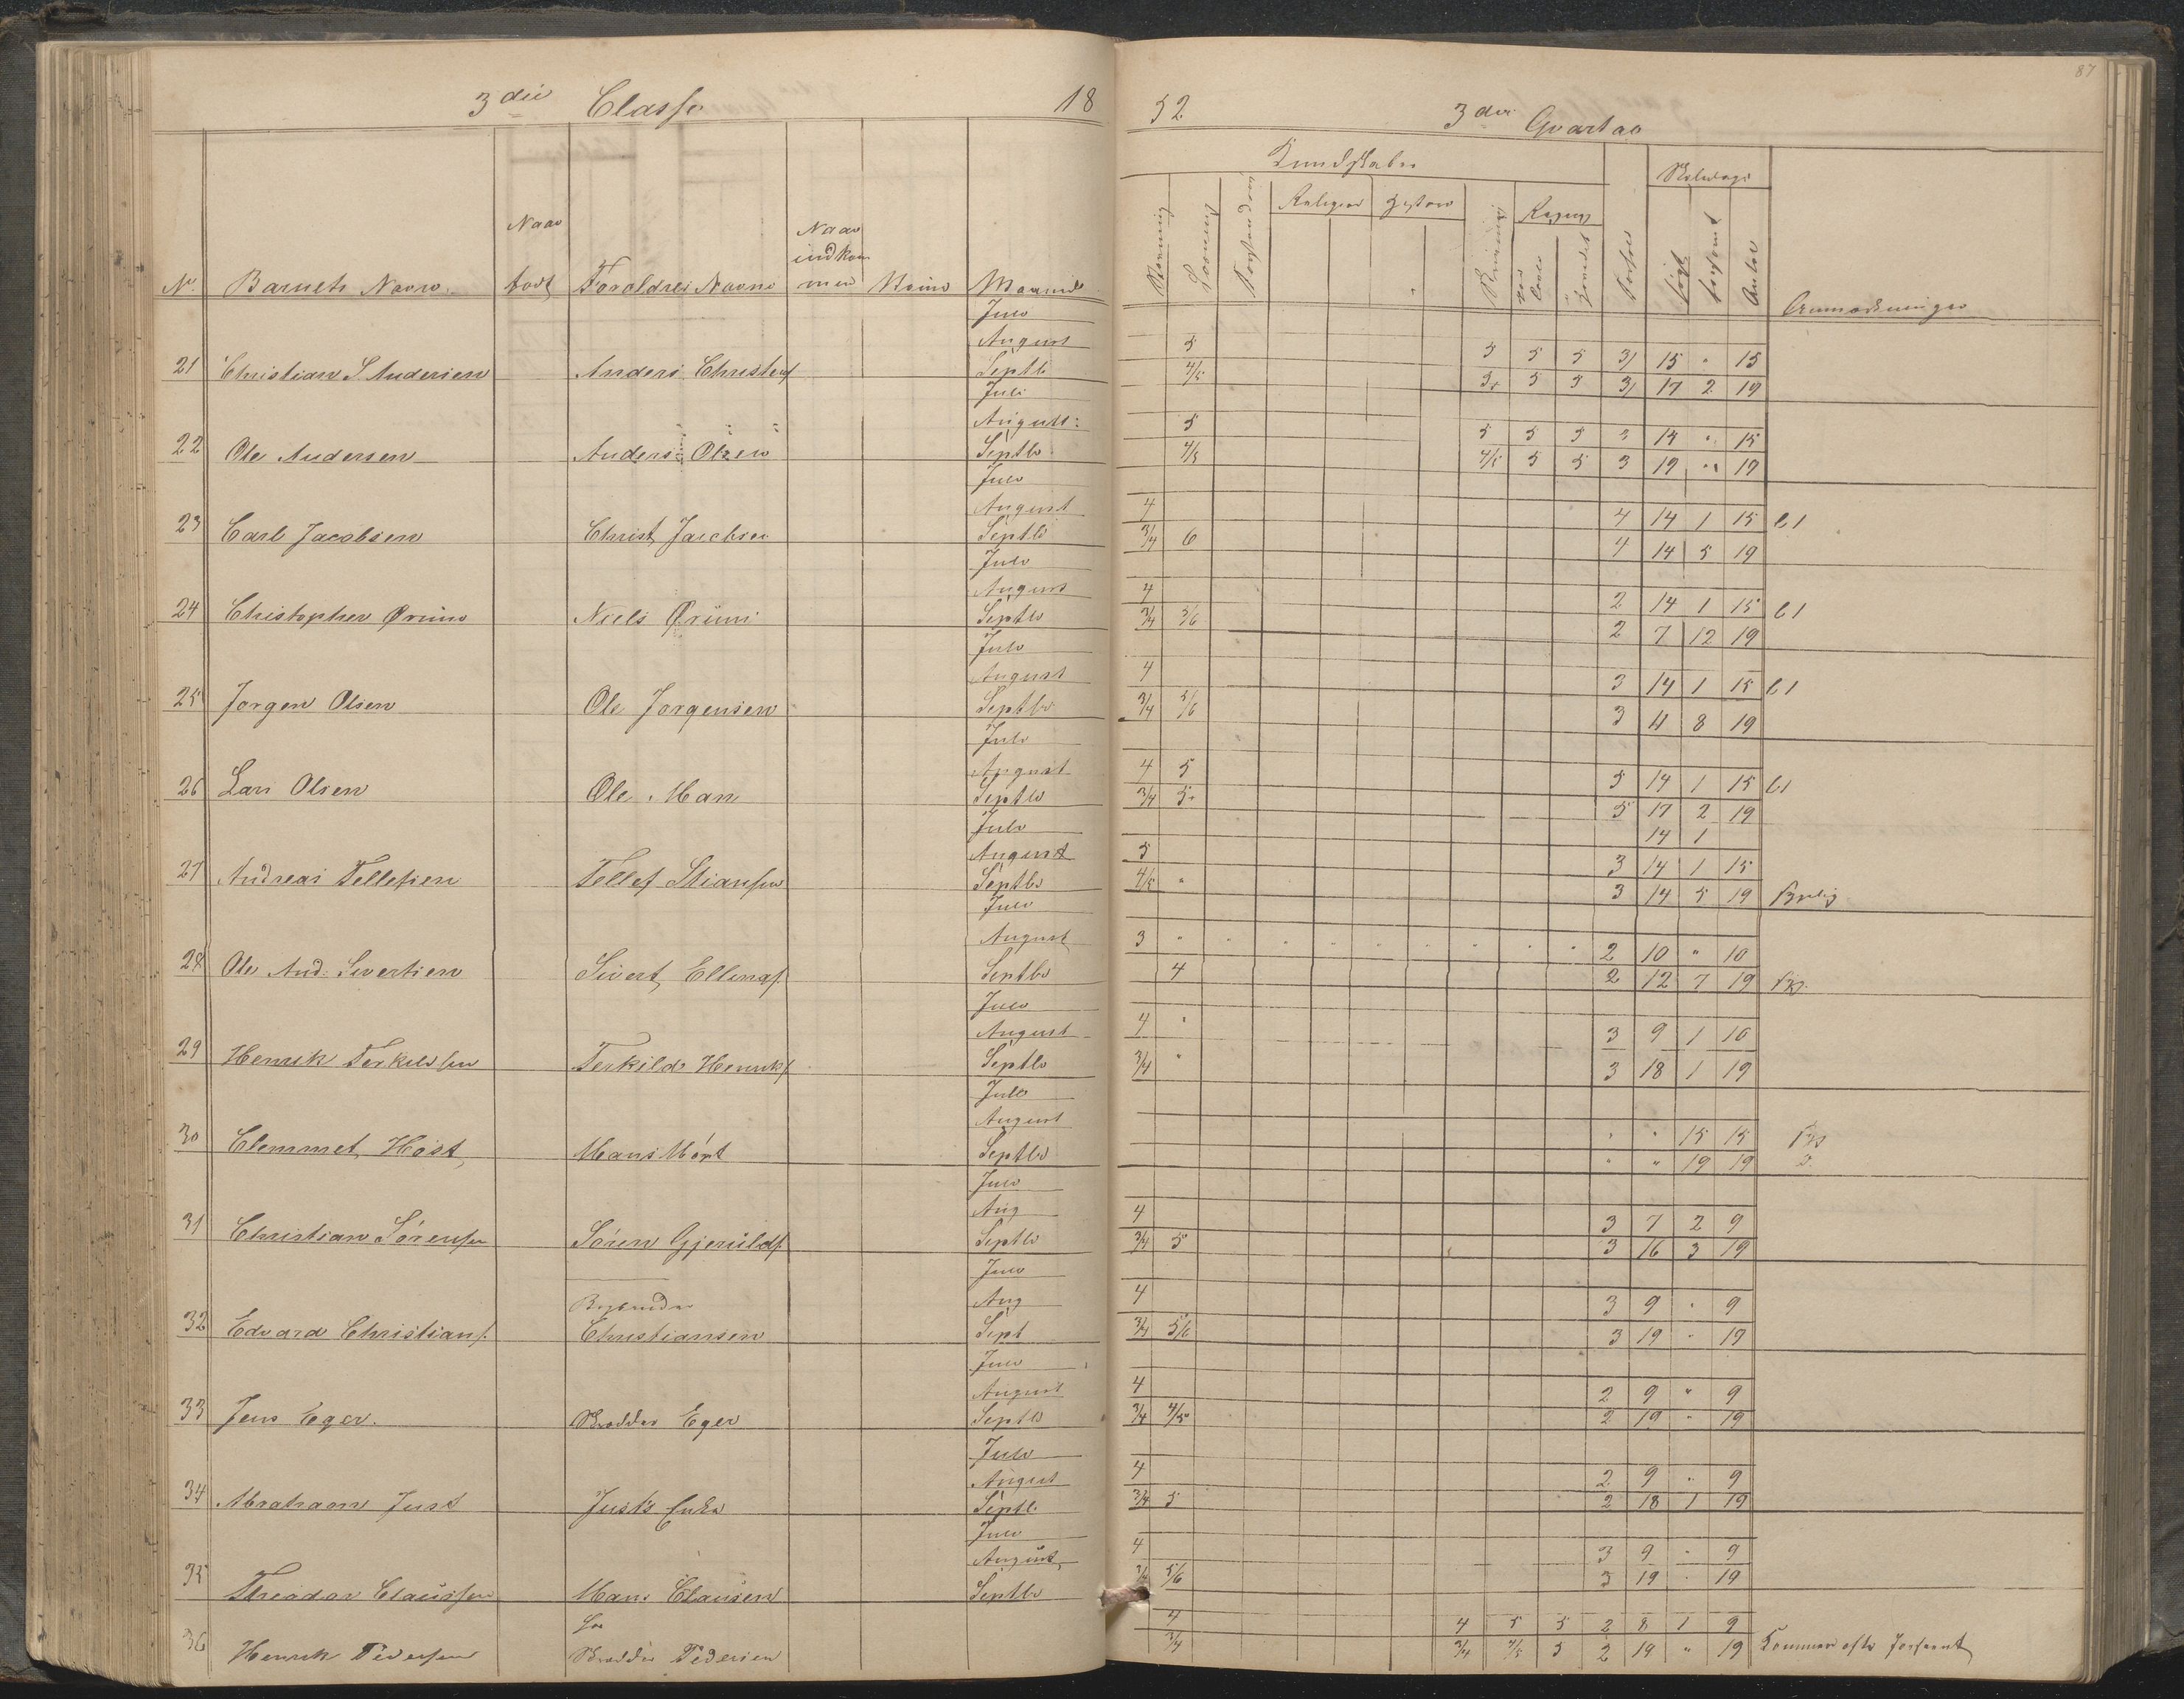 87
3die Classe 18
52 3die Qvartal
Kundskaber
Skoledage
Religion Historie Regning
Naar Naar
indkom
No. Barnets Navn født Forældres Navne men Maaned
Anmærkninger
Juli
August 5 5 5 5 3/ 15 " 15
21 Christian S. Andersen Anders Christens Septb 4/5 3+ 5 5 3/ 17 2 19
Juli
August 5 5 5 5 3 14 " 15
22 Ole Andersen Anders Olsen Septbr 4/5 4/5 5 5 3 19 " 19
Juli
August 4 4 14 1 15 l 1
23 Carl Jacobsen Christ. Jacobsen Septb 3/4 6 4 14 5 19
Juli
August 4 2 14 1 15 l 1
24 Christopher Grüm Niels Grüm Septbr 3/4 5/6 2 7 12 19
Juli
August 4 3 14 1 15 l 1
25 Jørgen Olsen Ole Jørgensen Septbr 3/4 5/6 3 11 8 19
Juli
August 4 5 5 14 1 15 l 1
26 Lars Olsen Ole Septbr 3/4 5 5 17 2 19
Juli 14 1
August 5 3 14 1 15
27 Andreas Tellefsen Tellef Stiansen Septbr 4/5 " 3 14 5 19
Juli
August 3 " " " " " " " " " " 2 10 " 10
28 Ole And. Sivertsen Sivert Ellings. Septbr 4 2 12 7 19
Juli
August 4 " 3 9 1 10
29 Henrik Terkildsen Terkild Henriks. Septbr 3/4 " 3 18 1 19
Juli
August " " 15 15
30 Clemmet Høst Septbr " " 19 19
Juli
Aug 4 3 7 2 9
31 Christian Sörensen Sören Gjerulds. Septbr 3/4 5 3 16 3 19
Juli
Bogbinder Aug 4 3 9 " 9
32 Edvard Christians. Christiansen Sept 3/4 5/6 3 19 " 19
Juli
August 4 2 9 " 9
33 Jens Eger. Skrædder Eger Septbr 3/4 4/5 2 19 " 19
Juli
August 4 2 9 " 9
34 Abraham Just Justs Enke Septb 3/4 5 2 18 1 19
Juli
August 4 3 9 " 9
35 Theodor Claussen Hans Clausen Septbr 3/4 5/6 3 19 " 19
4 4 5 5 2 8 1 9
36 Henrik Pedersen Skrædder Pedersen 3/4 3/4 4/5 5 2 19 " 19 Kommer ofte forseent